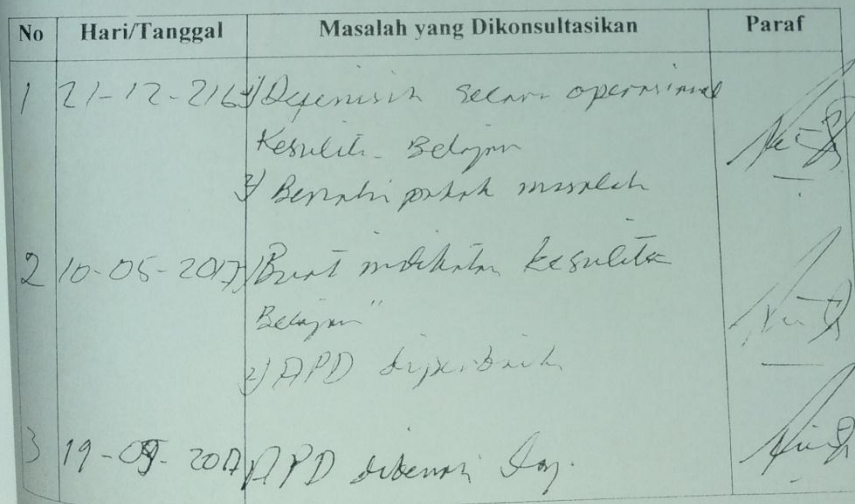 No Hari/Tanggal Masalah yang Dikonsultasikan Paraf
1 21-12-216 1) Defenisih secara operasional
Kesulita Belajar
2) Benahi pokok masalah
2 10-05-2017 1) Buat indikator kesulita
Belajar"
2) APD diperbaik
3 19-05-2017 APD dibenahi lag.